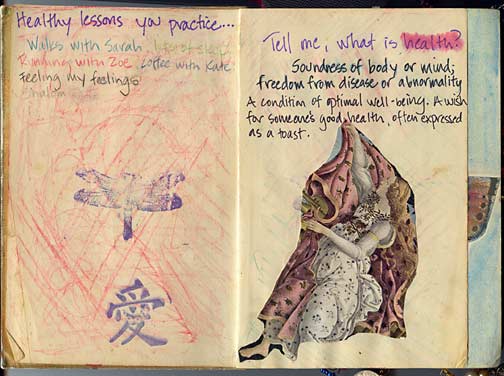 Healthy lessons you practice....
Walks with Sarah, lots of sleep
Running with Zoe coffee with Kate
Feeling my feelings
Shalom
愛
Tell me, what is health?
Soundness of body or mind;
freedom from disease or abnormality
A condition of optimal well-being. A wish
for someone's good health, often expressed
as a toast.